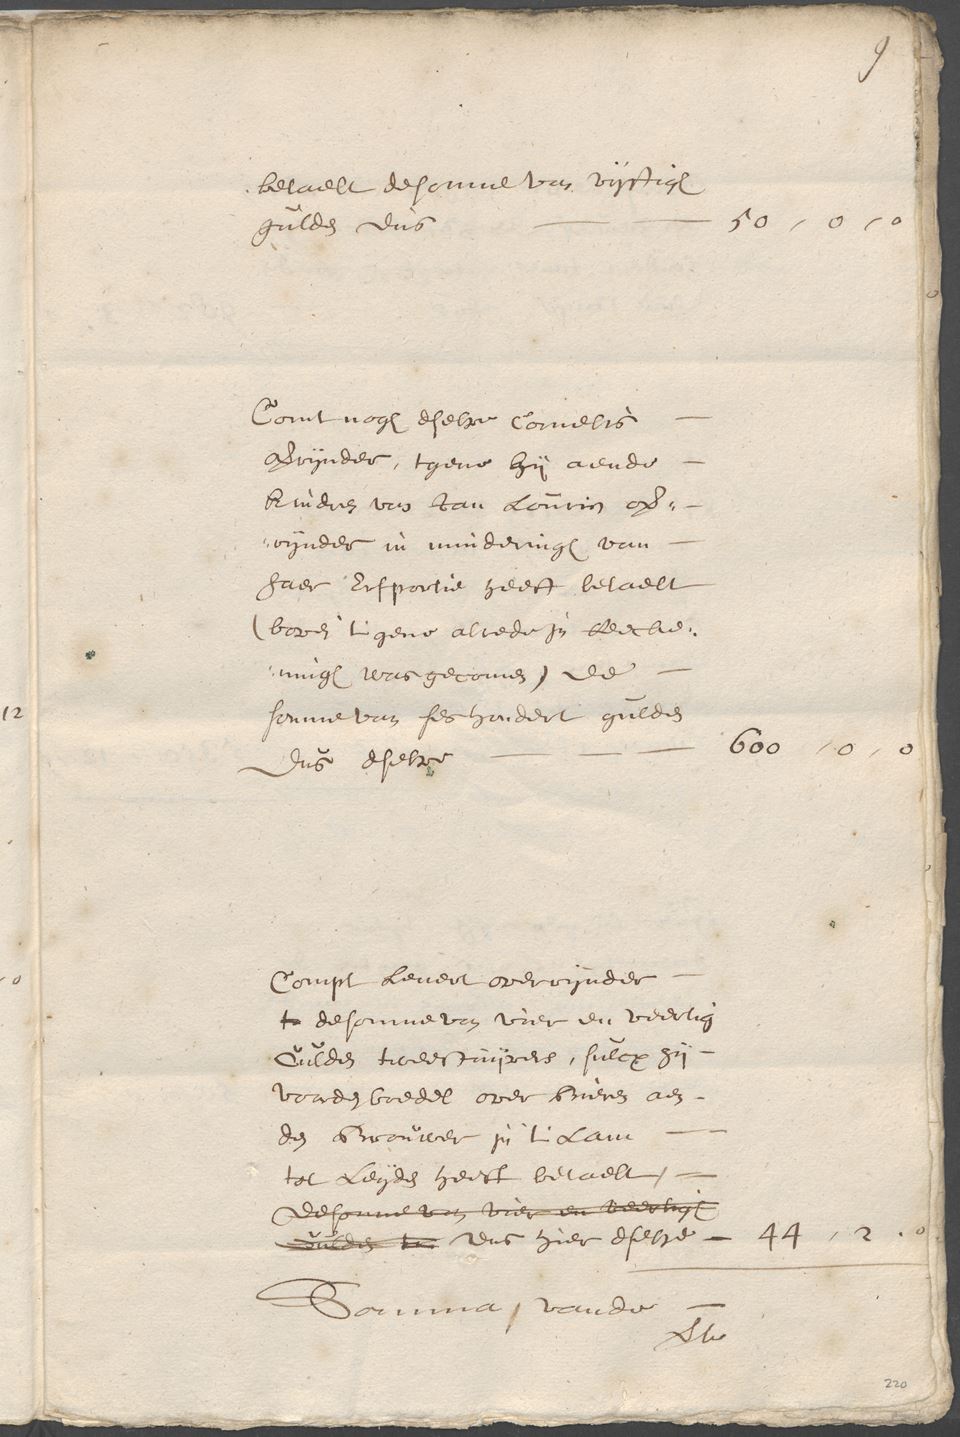 9
betaelt de somme van vijftich
gulden dus — — 50 , 0 , 0
Comt noch deselve Cornelis —
Overijnder, tgene hij aende —
kinderen van Jan Louris ove„ —
„rijnder in minderingh van —
haer Erfportie heeft betaelt
(boven tgene alrede in Reecke„
„ningh was gecomen) De —
somme van ses hondert gulden
Dus deselve — — — 600 , 0 , 0
12
0
Compt Leuert overrijnder —
de somme van vier en veertig
Gulden twee stuijvers, sulcx hij —
voorden boedel over bieren aen —
den Brouwer in t Lam —
tot Leijden heeft betaelt, —
de somme van vier en veertigh
Gulden tw Dus hier deselve — 44 , 2 . 0
Somma, vande —
220